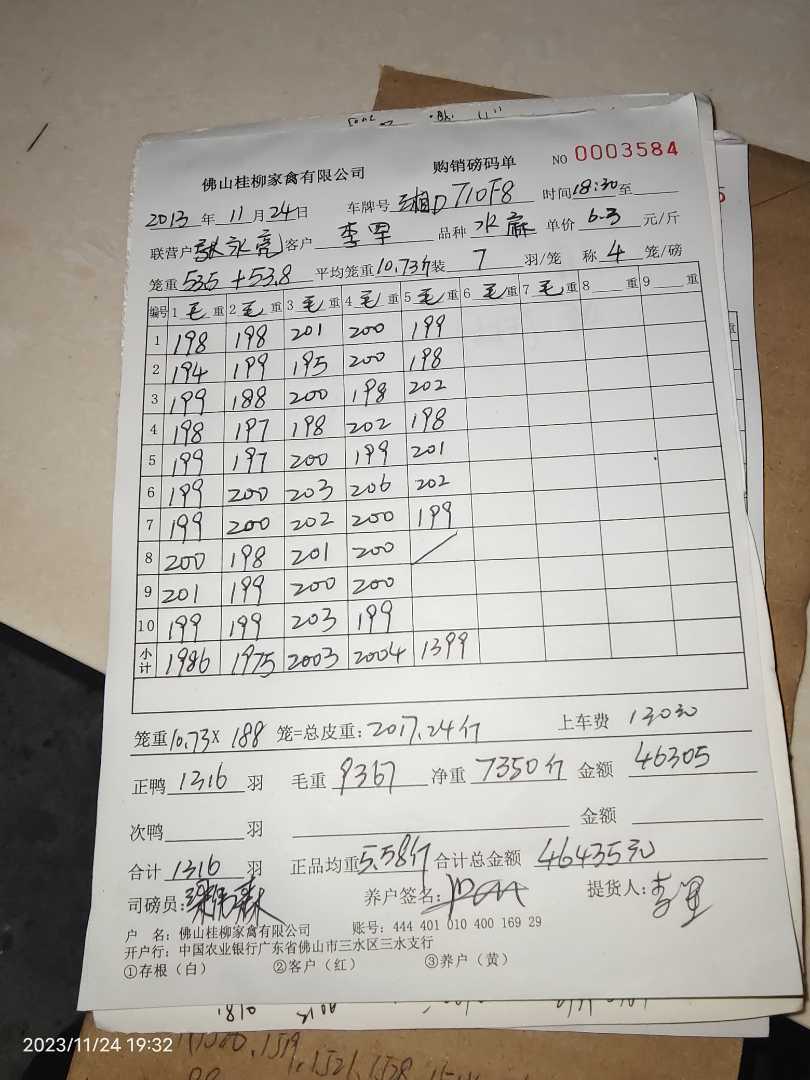 佛山桂柳家禽有限公司 购销磅码单 NO 0003584
2013 年 11 月 24 日 车牌号 湘D T10F8 时间 18:30 至
联营户 永亮 客户 李军 品种 水麻 单价 6.3 元/斤
笼重 535+53.8 平均笼重 10.73斤 装 7 羽/笼 称 4 笼/磅
编号 1 毛 重 2 毛 重 3 毛 重 4 毛 重 5 毛 重 6 毛 重 7 毛 重 8 重 9 重
1 198 198 201 200 199
2 194 199 195 200 198
3 199 188 200 198 202
4 198 197 198 202 198
5 199 197 200 199 201
6 199 200 203 206 202
7 199 200 202 200 199
8 200 198 201 200 /
9 201 199 200 200
10 199 199 203 199
小计 1986 1975 2003 2004 1399
笼重 10.73 X 188 笼=总皮重: 2017.24斤 上车费 130元
正鸭 1316 羽 毛重 9367 净重 7350斤 金额 46305
次鸭 羽 金额
合计 1316 羽 正品均重 5.58斤 合计总金额 46435元
司磅员: 养户签名: 提货人: 李军
户 名: 佛山桂柳家禽有限公司 账号: 444 401 010 400 169 29
开户行: 中国农业银行广东省佛山市三水区三水支行
①存根（白） ②客户（红） ③养户（黄）
2023/11/24 19:32